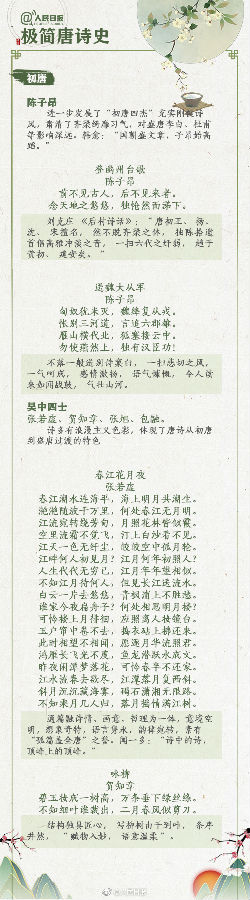 @人民日报
极简唐诗史
初唐
陈子昂
进一步发展了“初唐四杰”充实刚健诗
风，肃清了齐梁绮靡习气，对盛唐李白、杜甫
等影响深远。韩愈：“国朝盛文章，子昂始高
蹈。”
登幽州台歌
陈子昂
前不见古人，后不见来者。
念天地之悠悠，独怆然而涕下。
刘克庄《后村诗话》：“唐初王、杨、
沈、宋擅名，然不脱齐梁之体，独陈拾遗
首倡高雅冲淡之音，一扫六代之纤弱，趋于
黄初、建安矣。”
送魏大从军
陈子昂
匈奴犹未灭，魏绛复从戎。
怅别三河道，言追六郡雄。
雁山横代北，狐塞接云中。
勿使燕然上，独有汉臣功！
不落一般送别诗窠臼，一扫悲切之风，
一气呵成，感情激扬，语气慷慨，令人读
来如闻战鼓，气壮山河。
吴中四士
张若虚、贺知章、张旭、包融。
诗多有浪漫主义色彩，体现了唐诗从初唐
到盛唐过渡的特色
春江花月夜
张若虚
春江潮水连海平，海上明月共潮生。
滟滟随波千万里，何处春江无月明。
江流宛转绕芳甸，月照花林皆似霰。
空里流霜不觉飞，汀上白沙看不见。
江天一色无纤尘，皎皎空中孤月轮。
江畔何人初见月？江月何年初照人？
人生代代无穷已，江月年年望相似。
不知江月待何人，但见长江送流水。
白云一片去悠悠，青枫浦上不胜愁。
谁家今夜扁舟子？何处相思明月楼？
可怜楼上月徘徊，应照离人妆镜台。
玉户帘中卷不去，捣衣砧上拂还来。
此时相望不相闻，愿逐月华流照君。
鸿雁长飞光不度，鱼龙潜跃水成文。
昨夜闲潭梦落花，可怜春半不还家。
江水流春去欲尽，江潭落月复西斜。
斜月沉沉藏海雾，碣石潇湘无限路。
不知乘月几人归，落月摇情满江树。
通篇融诗情、画意、哲理为一体，意境空
明，想象奇特，语言隽永，韵律宛转，素有
“孤篇盖全唐”之誉。闻一多：“诗中的诗，
顶峰上的顶峰。”
咏柳
贺知章
碧玉妆成一树高，万条垂下绿丝绦。
不知细叶谁裁出，二月春风似剪刀。
结构独具匠心，写杨树由干到叶，条序
井然，“赋物入妙，语意温柔”。
@人民日报